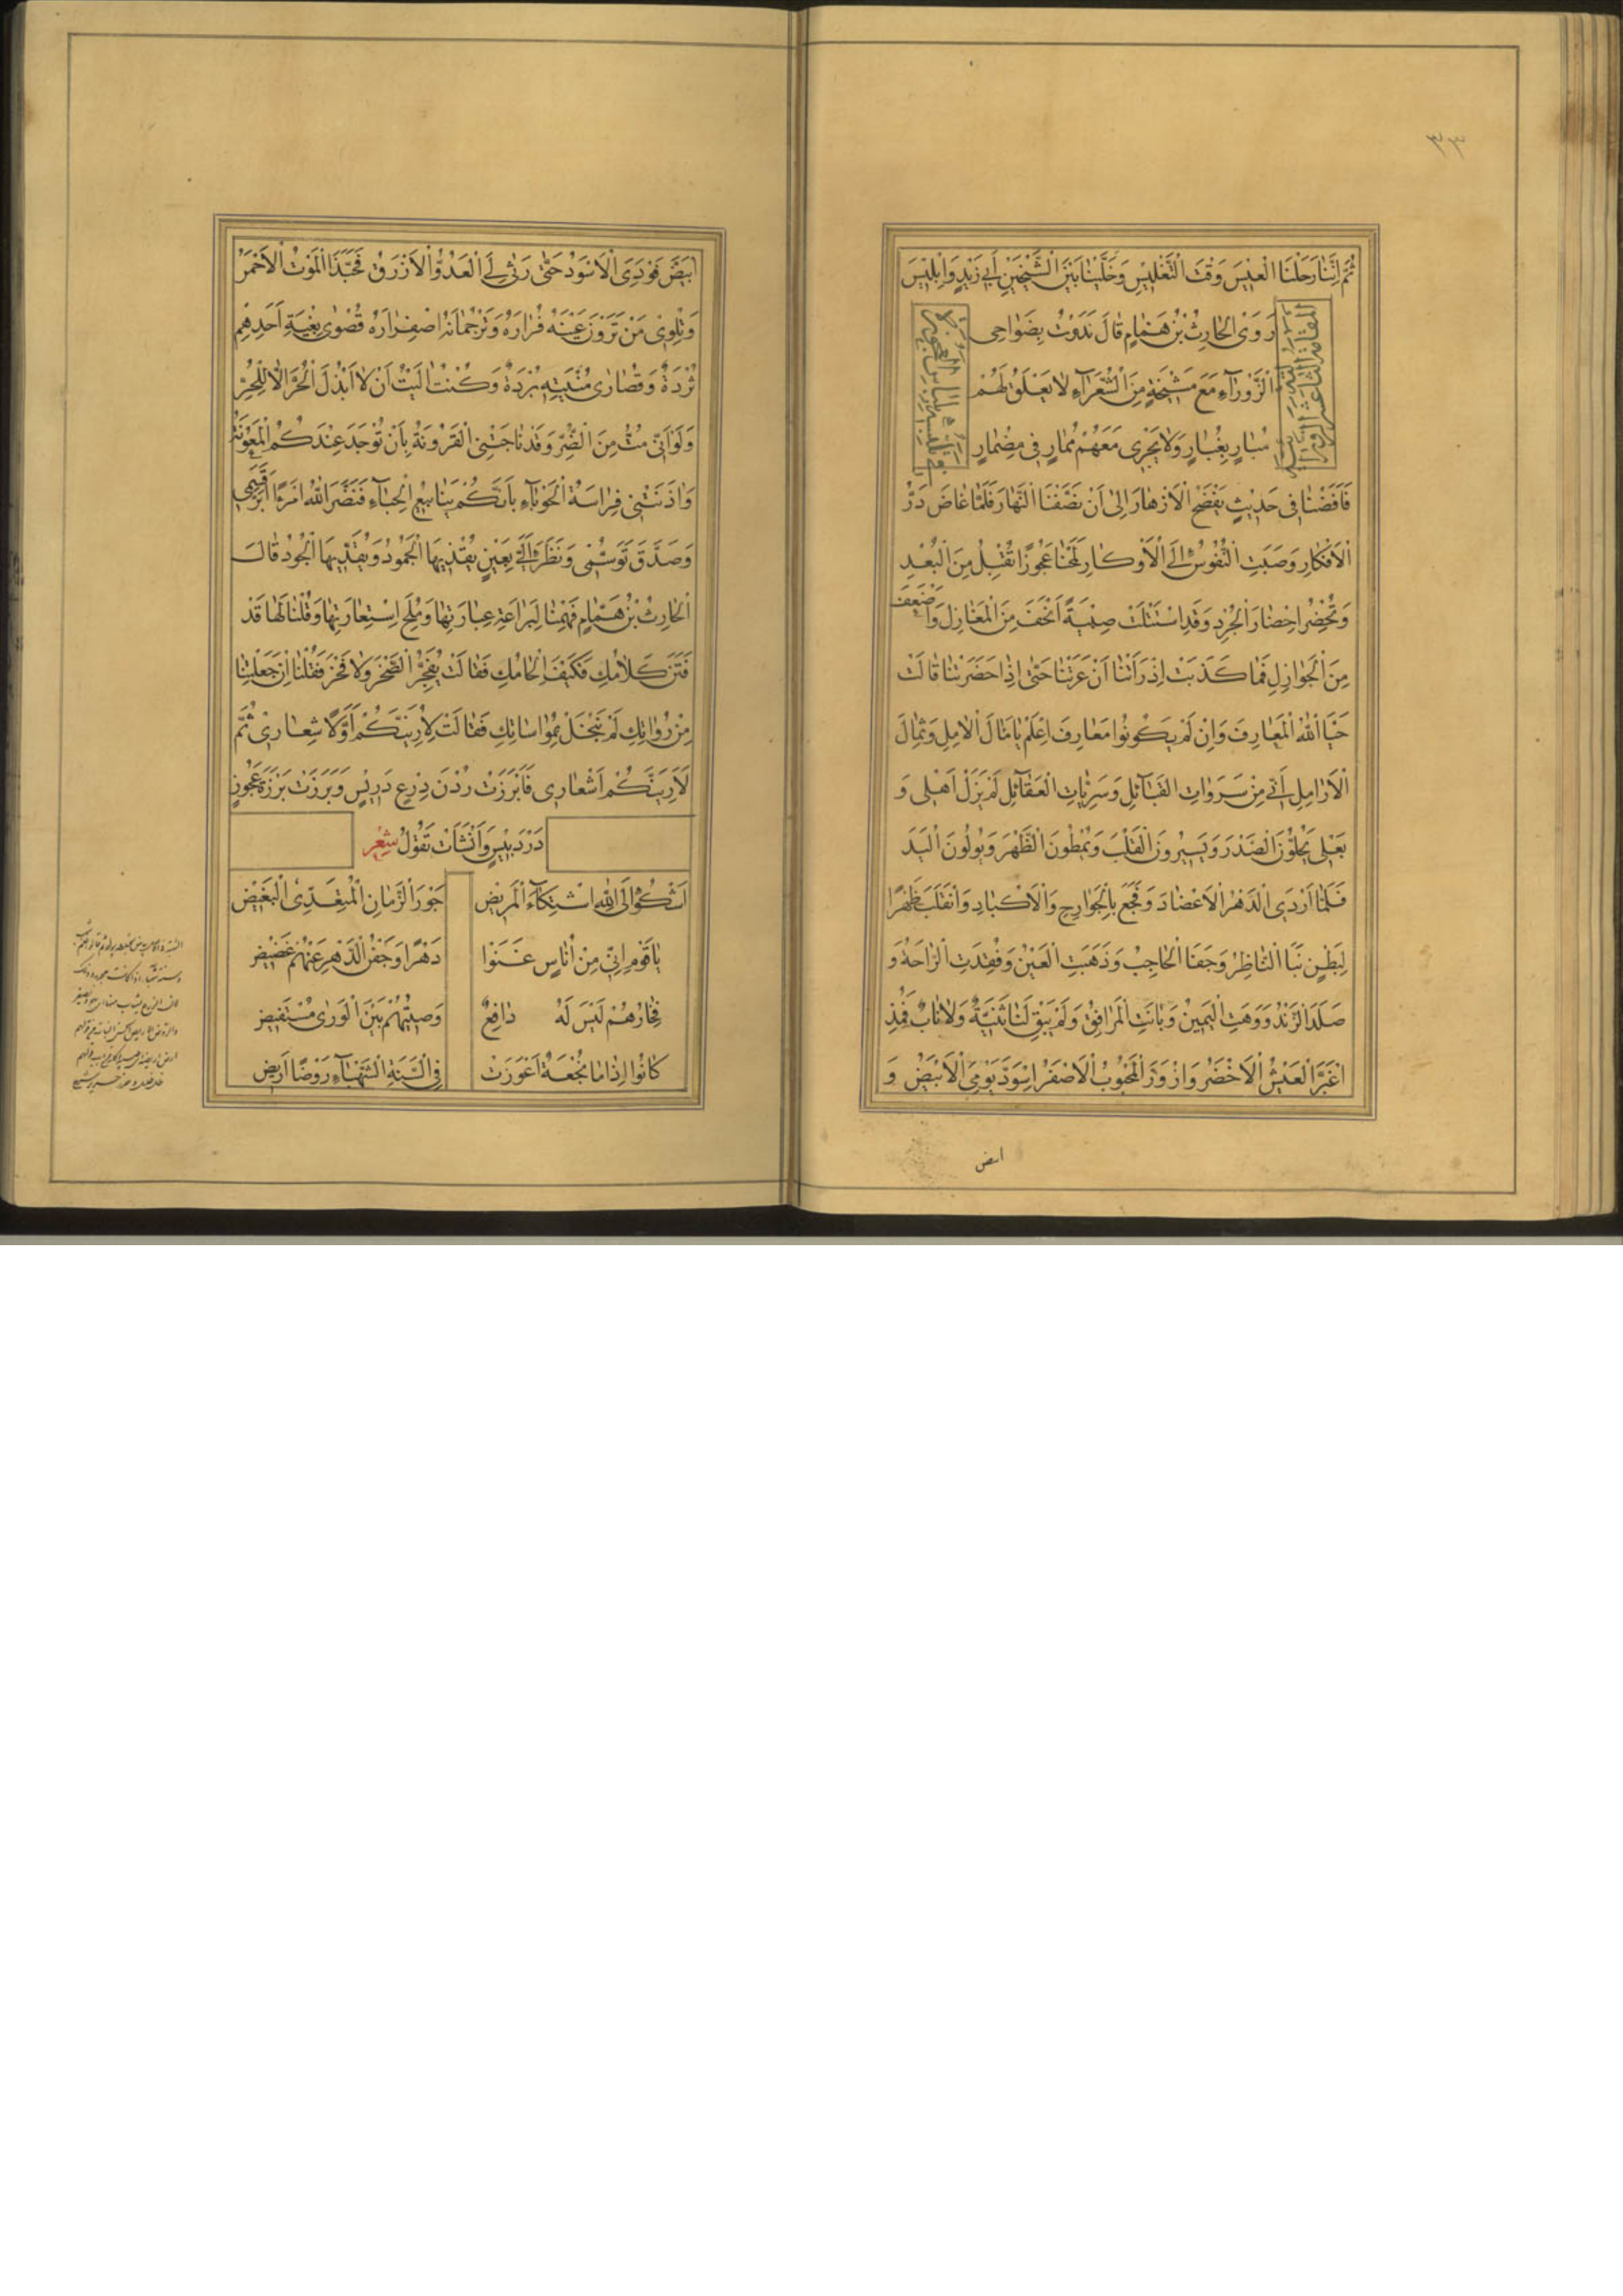 ٣٣
ثُمَّ اِنَّنَا رَحَلْنَا الْعِيسَ وَقْتَ التَّغْلِيسِ وَخَلَّيْنَا بَيْنَ الشَّيْخَيْنِ اَبِي زَيْدٍ وَاِبْلِيسَ
رَوَى الْحَارِثُ بْنُ هَمَّامٍ قَالَ نَدَوْتُ بِضَوَاحِى
الزَّوْرَآءِ مَعَ مَشْيَخَةٍ مِنَ الشُّعَرَآءِ لَا يَعْلَقُ لَهُمْ
مُبَارٍ بِغُبَارٍ وَلَا يَجْرِى مَعَهُمْ مُمَارٍ فِى مِضْمَارٍ
فَاَفَضْنَا فِى حَدِيثٍ يَفْضَحُ الْاَزْهَارَ اِلَى اَنْ نَصَّفْنَا النَّهَارَ فَلَمَّا غَاضَ دَرُّ
الْاَفْكَارِ وَصَبَتِ النُّفُوسُ اِلَى الْاَوْكَارِ لَمَحْنَا عَجُوزًا تُقْبِلُ مِنَ الْبُعْدِ
وَتُحْضِرُ اِحْضَارَ الْجُرْدِ وَقَدِ اسْتَتْلَتْ صِبْيَةً اَنْحَفَ مِنَ الْمَغَازِلِ وَاَضْعَفَ
مِنَ الْجَوَازِلِ فَمَا كَذَّبَتْ اِذْ رَاَتْنَا اَنْ عَرَتْنَا حَتَّى اِذَا حَضَرَتْنَا قَالَتْ
حَيَّا اللهُ الْمَعَارِفَ وَاِنْ لَمْ يَكُونُوا مَعَارِفَ اِعْلَمْ يَا مَآلَ الْاٰمِلِ وَثِمَالَ
الْاَرَامِلِ اَنِّى مِنْ سَرَوَاتِ الْقَبَآئِلِ وَسَرِيَّاتِ الْعَقَآئِلِ لَمْ يَزَلْ اَهْلِى وَ
بَعْلِى يَحُلُّونَ الصَّدْرَ وَيَسِيرُونَ الْقَلْبَ وَيُمْطُونَ الظَّهْرَ وَيُولُونَ الْيَدَ
فَلَمَّا اَرْدَى الدَّهْرُ الْاَعْضَادَ وَفَجَعَ بِالْجَوَارِحِ وَالْاَكْبَادِ وَانْقَلَبَ ظَهْرًا
لِبَطْنٍ نَبَا النَّاظِرُ وَجَفَا الْحَاجِبُ وَذَهَبَتِ الْعَيْنُ وَفُقِدَتِ الرَّاحَةُ وَ
صَلَدَ الزَّنْدُ وَوَهَتِ الْيَمِينُ وَبَانَتِ الْمَرَافِقُ وَلَمْ يَبْقَ لَنَا ثَنِيَّةٌ وَلَا نَابٌ فَمُذِ
اغْبَرَّ الْعَيْشُ الْاَخْضَرُ وَازْوَرَّ الْمَحْبُوبُ الْاَصْفَرُ اسْوَدَّ يَوْمِىَ الْاَبْيَضُ وَ
ابيض
ابْيَضَّ فَوْدِىَ الْاَسْوَدُ حَتَّى رَثَى لِىَ الْعَدُوُّ الْاَزْرَقُ فَحَبَّذَا الْمَوْتُ الْاَحْمَرُ
وَتِلْوِى مَنْ تَرَوْنَ عَيْنُهُ فُرَارُهُ وَتَرْجُمَانُهُ اصْفِرَارُهُ قُصْوَى بِغْيَةِ اَحَدِهِمْ
ثُرْدَةٌ وَقُصَارَى مُنْيَتِهِ بُرْدَةٌ وَكُنْتُ اٰلَيْتُ اَنْ لَا اَبْذُلَ الْحُرَّ اِلَّا لِلْحُرِّ
وَلَوْ اَنِّى مُتُّ مِنَ الضُّرِّ وَقَدْ نَاجَتْنِى الْقَرُونَةُ بِاَنْ تُوجَدَ عِنْدَكُمُ الْمَعُونَةُ
وَاٰذَنَتْنِى فِرَاسَةُ الْحَوْبَآءِ بِاَنَّكُمْ يَنَابِيعُ الْحِبَآءِ فَنَضَّرَ اللهُ امْرَءًا اَبَرَّ قَسَمِى
وَصَدَّقَ تَوَسُّمِى وَنَظَرَ اِلَىَّ بِعَيْنٍ يُقْذِيهَا الْجُمُودُ وَيُقَذِّيهَا الْجُودُ قَالَ
الْحَارِثُ بْنُ هَمَّامٍ فَهِمْنَا لِبَرَاعَةِ عِبَارَتِهَا وَمُلَحِ اسْتِعَارَتِهَا وَقُلْنَا لَهَا قَدْ
فَتَنَ كَلَامُكِ فَكَيْفَ اِلْحَامُكِ فَقَالَتْ يُفَجِّرُ الصَّخْرَ وَلَا فَخْرَ فَقُلْنَا اِنْ جَعَلْتِنَا
مِنْ رُوَاتِكِ لَمْ نَبْخَلْ بِمُوَاسَاتِكِ فَقَالَتْ لَاُرِيَنَّكُمْ اَوَّلًا شِعَارِى ثُمَّ
لَاُرْوِيَنَّكُمْ اَشْعَارِى فَاَبْرَزَتْ رُدْنَ دِرْعٍ دَرِيسٍ وَبَرَزَتْ بَرْزَةَ عَجُوزٍ
دَرْدَبِيسٍ وَاَنْشَاَتْ تَقُولُ شِعْر
اَشْكُو اِلَى اللهِ اشْتِكَآءَ الْمَرِيضِ جَوْرَ الزَّمَانِ الْمُتَعَدِّى الْبَغِيضِ
يَا قَوْمِ اِنِّى مِنْ اُنَاسٍ غَنَوْا دَهْرًا وَجَفْنُ الدَّهْرِ عَنْهُمْ غَضِيضٌ
فِخَارُهُمْ لَيْسَ لَهُ دَافِعٌ وَصِيتُهُمْ بَيْنَ الْوَرَى مُسْتَفِيضٌ
كَانُوا اِذَا مَا نُجْعَةٌ اَعْوَزَتْ فِى السَّنَةِ الشَّهْبَآءِ رَوْضًا اَرِيضٌ